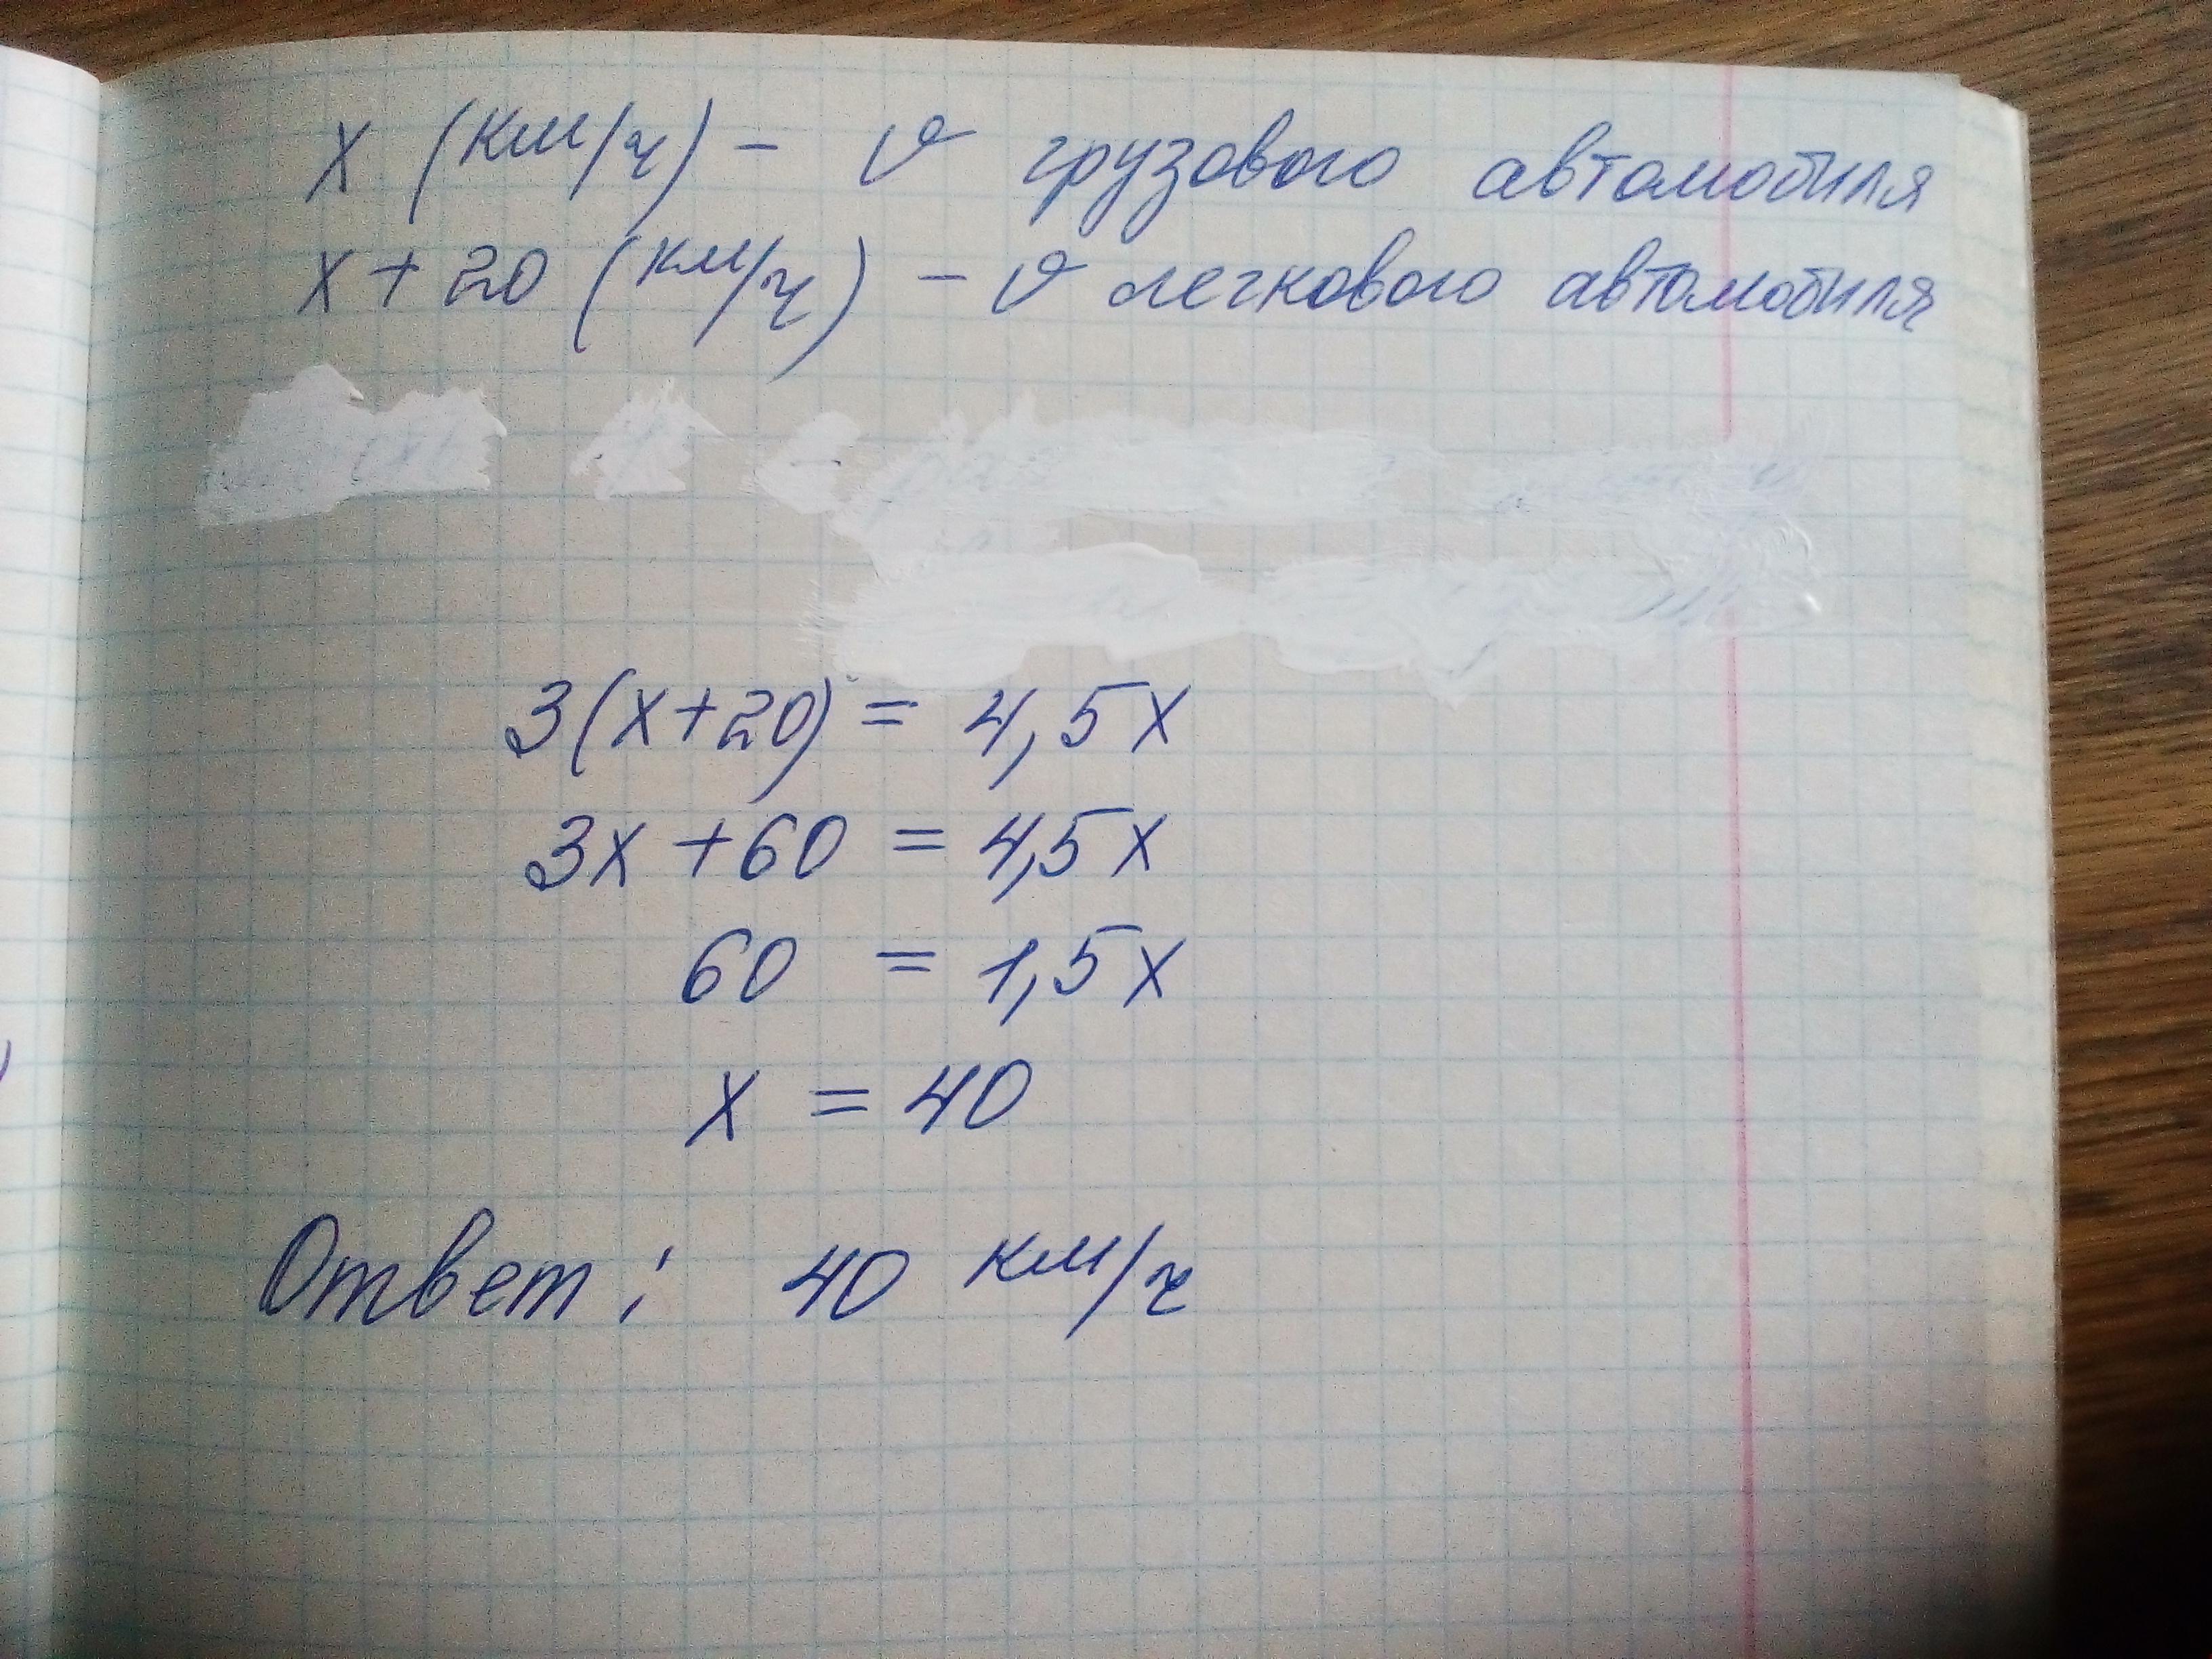 x (км/ч) - v грузового автомобиля
x + 20 (км/ч) - v легкового автомобиля
3(x+20) = 4,5x
3x + 60 = 4,5x
60 = 1,5x
x = 40
Ответ: 40 км/ч